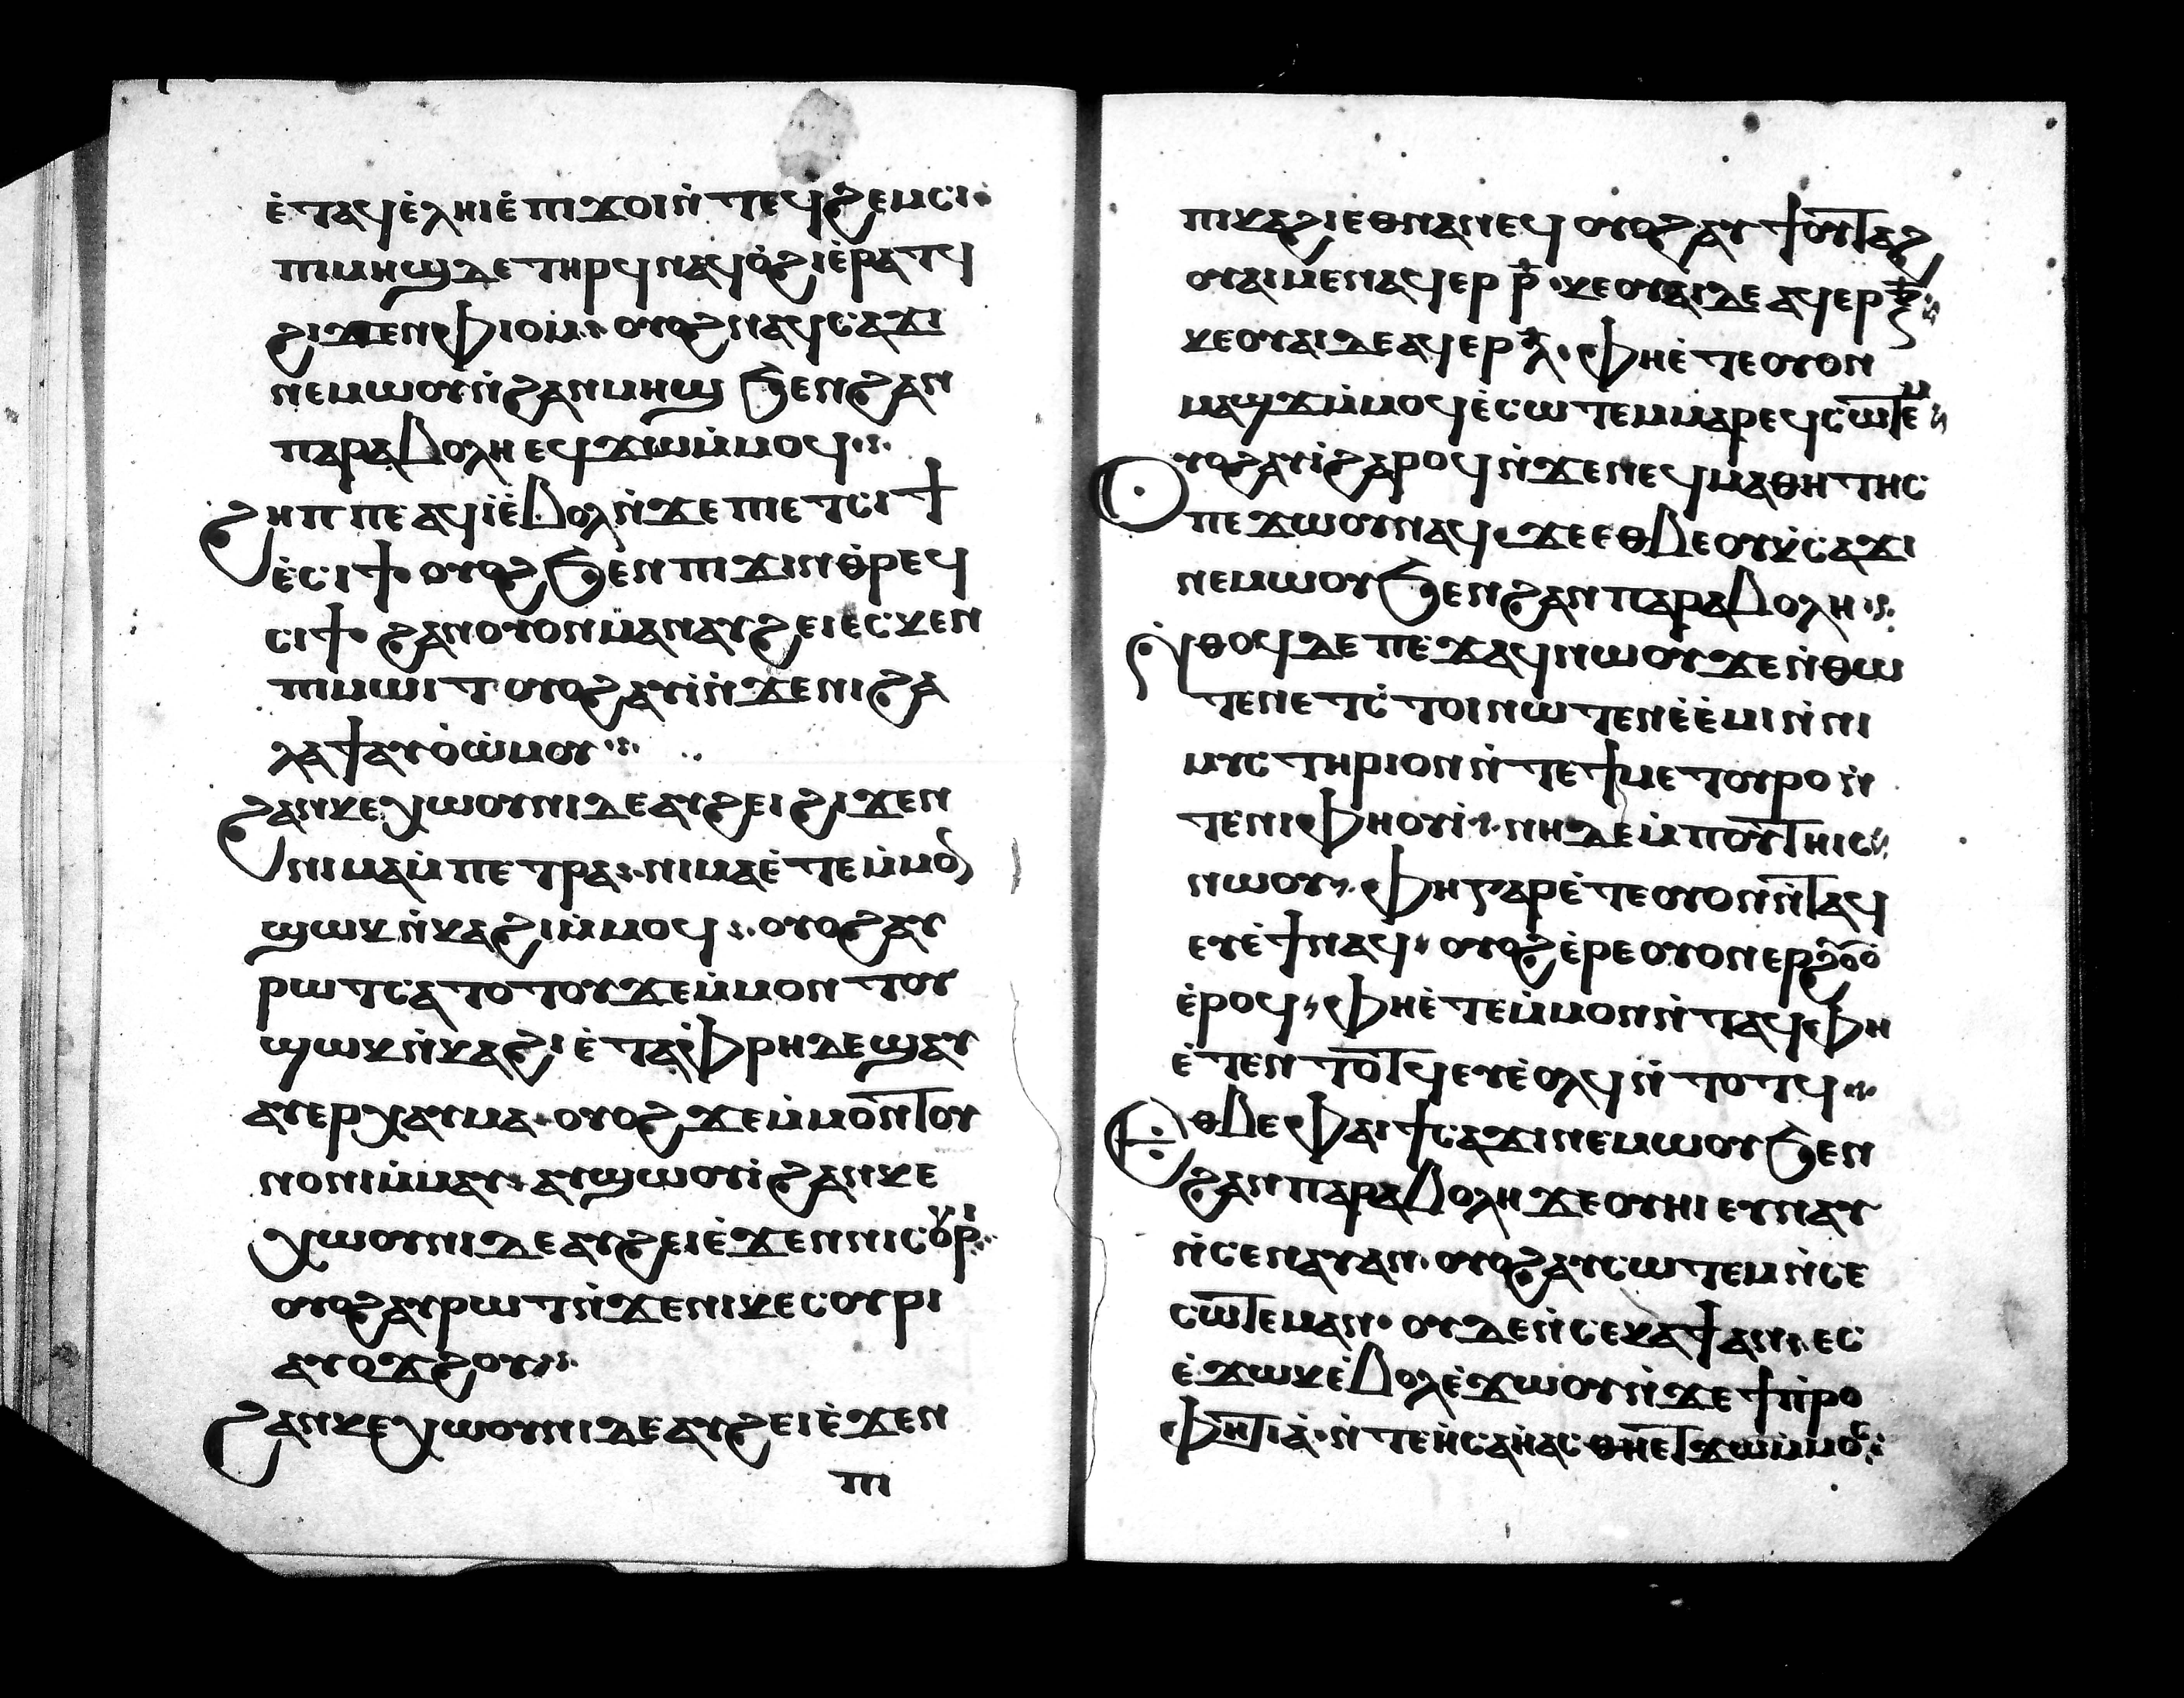 ⲉ̀ⲧⲁϥⲉ̀ⲗⲏⲓⲉ̀ⲡⲓϫⲟⲓⲛ̀ⲧⲉϥϩⲉⲙⲥⲓ·
ⲡⲓⲙⲏϣⲇⲉⲧⲏⲣϥⲛⲁϥⲟ̀ϩⲓⲉ̀ⲣⲁⲧϥ
ϩⲓϫⲉⲛⲫⲓⲟⲙ̀·:· ⲟⲩⲟϩⲛⲁϥⲥⲁϫⲓ
ⲛⲉⲙⲱⲟⲩⲛ̀ϩⲁⲛⲙⲏϣ ϧⲉⲛϩⲁⲛ
ⲡⲁⲣⲁⲃⲟⲗⲏ ⲉϥϫⲱⲙ̀ⲙⲟϥ·:·
ϩⲏⲡⲡⲉ ⲁϥⲓ̀ⲉ̀ⲃⲟⲗⲛ̀ϫⲉ ⲡⲓⲉⲧⲥⲓϯ
ⲉ̀ⲥⲓϯ· ⲟⲩⲟϩ ϧⲉⲛ ⲡⲓϫⲓⲛⲑ̀ⲣⲉϥ
ⲥⲓϯ· ϩⲁⲛⲟⲩⲟⲛⲙⲉⲛⲁⲩϩⲉⲓⲉⲥⲕⲉⲛ
ⲡⲓⲙⲱⲓⲧ ⲟⲩⲟϩⲁⲩⲓ̀ⲛ̀ϫⲉⲛⲓϩⲁ
ⲗⲁϯⲁⲩⲟ̀ⲱ̀ⲙⲟⲩ·:·
ϩⲁⲛⲕⲉⲭⲱⲟⲩⲛⲓⲇⲉⲁⲩϩⲉⲓ ϩⲓϫⲉⲛ
ⲛⲓⲙⲁⲙ̀ⲡⲉⲧⲣⲁ:·ⲛⲓⲙⲁⲉ̀ⲧⲉⲙ̀ⲙⲟⲛ
ϣⲱⲕⲛ̀ⲕⲁϩⲓⲙ̀ⲙⲟϥ :· ⲟⲩⲟϩⲁⲩ
ⲣⲱⲧⲥⲁⲧⲟⲧⲟⲩϫⲉⲙ̀ⲙⲟⲛ ⲧⲟⲩ
ϣⲱⲕⲛ̀ⲕⲁϩⲓ ⲉ̀ⲧⲁⲫ̀ⲣⲏⲇⲉϣⲁⲓ
ⲁⲩⲉⲣⲭⲁⲩⲙⲁ·ⲟⲩⲟϩ ϫⲉⲙ̀ⲙⲟⲛⲧⲟⲩ
ⲛⲟⲛⲓⲙ̀ⲙⲁⲩ: ⲁⲩϣⲱⲟⲩⲓ̀ ϩⲁⲛⲕⲉ
ⲭⲱⲟⲩⲛⲓⲇⲉⲁⲩϩⲉⲓⲉ̀ϫⲉⲛⲛⲓⲥⲟⲩⲣⲓ·:·
ⲟⲩⲟϩⲁⲩⲣⲱⲧⲛ̀ϫⲉⲛⲓⲕⲉⲥⲟⲩⲣⲓ
ⲁⲩⲟϫϩⲟⲩ·:·
ϩⲁⲛⲕⲉⲭⲱⲟⲩⲛⲓⲇⲉⲁⲩϩⲉⲓⲉ̀ϫⲉⲛ
ⲡⲓ
ⲡⲓⲕⲁϩⲓⲉⲑⲛⲁⲛⲉϥ ⲟⲩⲟϩⲁⲩϯⲟⲩⲧⲁϩ
ⲟⲩⲁⲓⲙⲉⲛⲁϥⲉⲣ ⲣ̄·ⲕⲉⲟⲩⲁⲓⲇⲉ ⲁϥⲉⲣ ⲝ̄:·
ⲕⲉⲟⲩⲁⲓⲇⲉⲁϥⲉⲣ ⲗ̄· ⲫⲏⲉ̀ⲧⲉⲟⲩⲟⲛ
ⲙⲁϣϫⲙ̀ⲙⲟϥⲉ̀ⲥⲱⲧⲉⲙⲙⲁⲣⲉϥⲥⲱⲧⲉⲙ:·
ⲟⲩⲟϩⲁⲩⲓ̀ϩⲁⲣⲟϥⲛ̀ϫⲉⲛⲉϥⲙⲁⲑⲏⲧⲏⲥ
ⲡⲉϫⲱⲟⲩⲛⲁϥ·ϫⲉⲉⲑⲃⲉⲟⲩⲕ̀ⲥⲁϫⲓ
ⲛⲉⲙⲱⲟⲩϧⲉⲛϩⲁⲛⲡⲁⲣⲁⲃⲟⲗⲏ·:·
ⲛ̀ⲑⲟϥⲇⲉⲡⲉϫⲁϥⲛⲱⲟⲩϫⲉⲛ̀ⲑⲱ
ⲧⲉⲛⲉⲧⲥ̀ⲧⲟⲓⲛⲱⲧⲉⲛⲉ̀ⲉ̀ⲙⲓⲛ̀ⲛⲓ
ⲙⲩⲥⲧⲏⲣⲓⲟⲛⲛ̀ⲧⲉϯⲙⲉⲧⲟⲩⲣⲟ ⲛ̀
ⲧⲉⲛⲓⲫⲏⲟⲩⲓ̀·:· ⲛⲏⲇⲉⲙ̀ⲡⲟⲩⲧⲏⲓⲥ:·
ⲛⲱⲟⲩ·:· ⲫⲏⲅⲁⲣⲉ̀ⲧⲉⲟⲩⲟⲛⲛ̀ⲧⲁϥ
ⲉⲩⲉ̀ϯⲛⲁϥ· ⲟⲩⲟϩⲉ̀ⲣⲉⲟⲩⲟⲛⲉⲣϩⲟⲩⲟ̀
ⲉ̀ⲣⲟϥ· ⲫⲏⲉ̀ⲧⲉⲙ̀ⲙⲟⲛⲛ̀ⲧⲁϥⲫⲏ
ⲉ̀ⲧⲉⲛⲧⲟⲧϥⲉⲩⲉ̀ⲟⲗϥⲛ̀ⲧⲟⲧϥ·:·
ⲉⲑⲃⲉ ⲫⲁⲓ ϯⲥⲁϫⲓⲛⲉⲙⲱⲟⲩϧⲉⲛ
ϩⲁⲛⲡⲁⲣⲁⲃⲟⲗⲏϫⲉⲟⲩⲏⲓ ⲉⲩⲛⲁⲩ
ⲛ̀ⲥⲉⲛⲁⲩⲁⲛ· ⲟⲩⲟϩⲁⲩⲥⲱⲧⲉⲙⲛ̀ⲥⲉ
ⲥⲱⲧⲉⲙⲁⲛ· ⲟⲩⲇⲉⲛ̀ⲥⲉⲕⲁϯⲁⲛ·:·ⲉⲥ
ⲉ̀ϫⲱⲕⲉ̀ⲃⲟⲗⲉ̀ϫⲱⲟⲩⲛ̀ϫⲉϯⲡ̀ⲣⲟ
ⲫⲏⲧⲓⲁ̀·ⲛ̀ⲧⲉⲏ̀ⲥⲁⲏ̀ⲁⲥ ⲑⲏⲉⲧϫⲱⲙ̀ⲙⲟⲥ:·